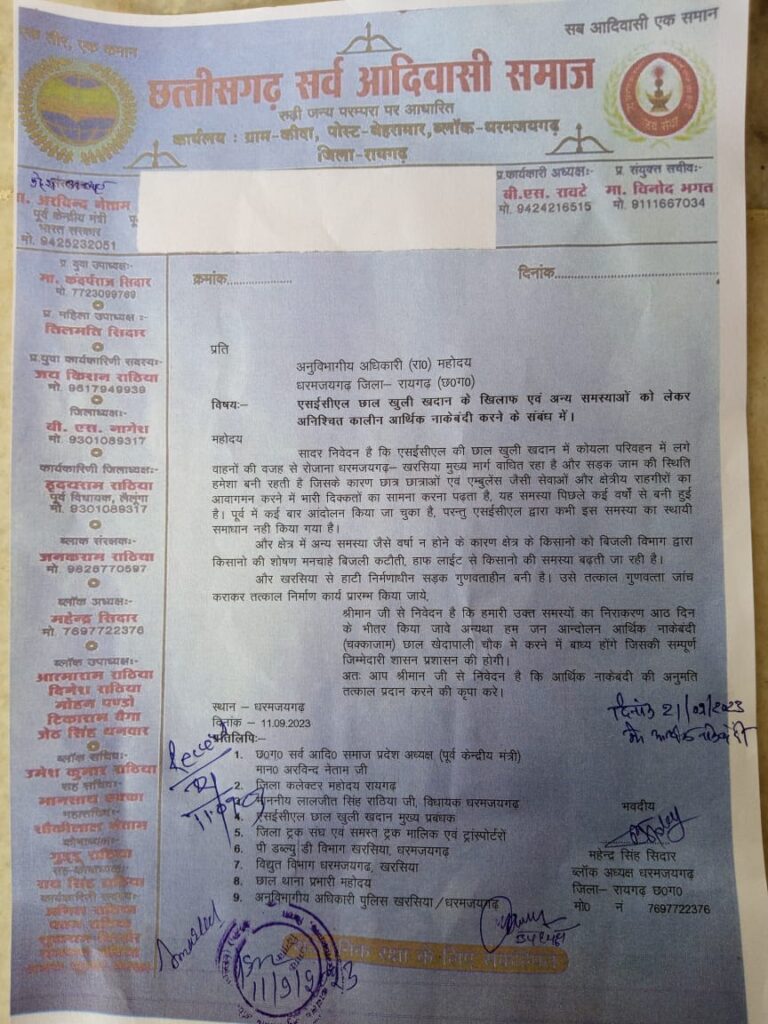 एक तीर, एक कमान
सब आदिवासी एक समान
छत्तीसगढ़ सर्व आदिवासी समाज
रूढ़ी जन्य परम्परा पर आधारित
कार्यलय : ग्राम-कीदा, पोस्ट-बेहरामार, ब्लॉक-धरमजयगढ़
जिला-रायगढ़
मा. अरविन्द नेताम
पूर्व केन्द्रीय मंत्री
भारत सरकार
मो. 9425232051
प्र.कार्यकारी अध्यक्षः-
बी.एस. रावटे
मो. 9424216515
प्र. संयुक्त सचीवः-
मा. विनोद भगत
मो. 9111667034
प्र. युवा उपाध्यक्षः-
मा. कंदर्पराज सिदार
मो. 7723099769
प्र. महिला उपाध्यक्षः-
तिलमति सिदार
प्र.युवा कार्यकारिणी सदस्यः-
जय किशन राठिया
मो. 9617949939
जिलाध्यक्षः-
बी. एस. नागेश
मो. 9301089317
कार्यकारिणी जिलाध्यक्षः-
हृदयराम राठिया
पूर्व विधायक, लैलुंगा
मो. 9301089317
ब्लाक संरक्षकः-
जनकराम राठिया
मो. 9826770597
ब्लॉक अध्यक्षः-
महेन्द्र सिदार
मो. 7697722376
ब्लॉक उपाध्यक्षः-
आत्माराम राठिया
दिनेश राठिया
मोहन पण्डो
टिकाराम बैगा
जेठ सिंह धनवार
ब्लॉक सचिवः-
उमेश कुमार राठिया
सह सचिवः-
मानसाय एक्का
महासचिवः-
शौकीलाल नेताम
कोषाध्यक्षः-
गुड्डू राठिया
सह-कोषाध्यक्षः-
राय सिंह राठिया
कार्यकारिणी सदस्यः-
क्रमांक..................
दिनांक....................................
प्रति
अनुविभागीय अधिकारी (रा0) महोदय
धरमजयगढ़ जिला– रायगढ़ (छ0ग0)
विषयः– एसईसीएल छाल खुली खदान के खिलाफ एवं अन्य समस्याओं को लेकर
अनिश्चित कालीन आर्थिक नाकेबंदी करने के संबंध में।
महोदय
सादर निवेदन है कि एसईसीएल की छाल खुली खदान में कोयला परिवहन में लगे
वाहनों की वजह से रोजाना धरमजयगढ़– खरसिया मुख्य मार्ग वाधित रहा है और सड़क जाम की स्थिति
हमेशा बनी रहती है जिसके कारण छात्र छात्राओं एवं एम्बुलेंस जैसी सेवाओं और क्षेत्रीय राहगीरों का
आवागमन करने में भारी दिक्कतों का सामना करना पढ़ता है, यह समस्या पिछले कई वर्षो से बनी हुई
है। पूर्व में कई बार आंदोलन किया जा चुका है, परन्तु एसईसीएल द्वारा कभी इस समस्या का स्थायी
समाधान नही किया गया है।
और क्षेत्र में अन्य समस्या जैसे वर्षा न होने के कारण क्षेत्र के किसानो को बिजली विभाग द्वारा
किसानो की शोषण मनचाहे बिजली कटौती, हाफ लाईट से किसानो की समस्या बढ़ती जा रही है।
और खरसिया से हाटी निर्मणाधीन सड़क गुणवताहीन बनी है। उसे तत्काल गुणवत्ता जांच
कराकर तत्काल निर्माण कार्य प्रारम्भ किया जाये,
श्रीमान जी से निवेदन है कि हमारी उक्त समस्यों का निराकरण आठ दिन
के भीतर किया जावे अन्यथा हम जन आन्दोलन आर्थिक नाकेबंदी
(चक्काजाम) छाल खेदापाली चौक मे करने में बाध्य होंगे जिसकी सम्पूर्ण
जिम्मेदारी शासन प्रशासन की होगी।
अतः आप श्रीमान जी से निवेदन है कि आर्थिक नाकेबंदी की अनुमति
तत्काल प्रदान करने की कृपा करे।
स्थान – धरमजयगढ़
दिनांक – 11.09.2023
दिनांक 21/09/2023
प्रतिलिपिः–
1. छ0ग0 सर्व आदि0 समाज प्रदेश अध्यक्ष (पूर्व केन्द्रीय मंत्री)
मान0 अरविन्द नेताम जी
2. जिला कलेक्टर महोदय रायगढ़
माननीय लालजीत सिंह राठिया जी, विधायक धरमजयगढ़
4. एसईसीएल छाल खुली खदान मुख्य प्रबंधक
5. जिला ट्रक संघ एवं समस्त ट्रक मालिक एवं ट्रांसपोर्टरों
6. पी डब्ल्यु डी विभाग खरसिया, धरमजयगढ़
7. विद्युत विभाग धरमजयगढ़, खरसिया
8. छाल थाना प्रभारी महोदय
9. अनुविभागीय अधिकारी पुलिस खरसिया/धरमजयगढ़
भवदीय
महेन्द्र सिंह सिदार
ब्लॉक अध्यक्ष धरमजयगढ़
जिला– रायगढ़ छ0ग0
मो0 नं 7697722376
11/9/2023